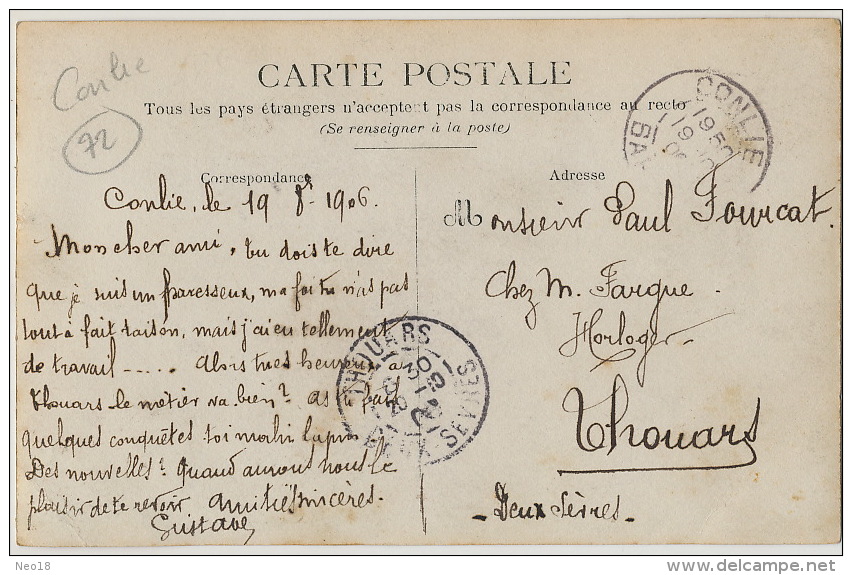 Conlie
72
CARTE POSTALE
Tous les pays étrangers n'acceptent pas la correspondance au recto
(Se renseigner à la poste)
Correspondance
Adresse
CONLIE
19
Conlie, le 19 8r 1906.
Mon cher ami, tu dois te dire
que je suis un paresseux, ma foi tu n'as pas
tout à fait raison, mais j'ai eu tellement
de travail ..... Alors tu es heureux à
Thouars le métier va bien? as tu fait
quelques conquêtes toi malin lapin
Des nouvelles? Quand aurons nous le
plaisir de te revoir amitiés sincères.
Gustave
THOUARS
DEUX SEVRES
Monsieur Paul Fourcat.
Chez M. Fargue.
Horloger
Thouars
- Deux Sèvres -
Neo18
delcampe.net